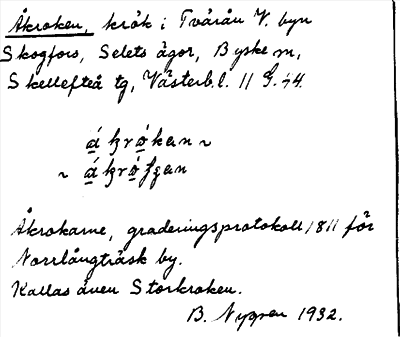 Åkroken, krök i Tvärån V. byn
Skogfors, Selets ägor, Byske sn,
Skellefteå tg, Västerb.l. 11 G. 44.
Åkrokarne, graderingsprotokoll 1811 för
Norrlångträsk by.
Kallas även Storkroken.
B. Nygren 1932.